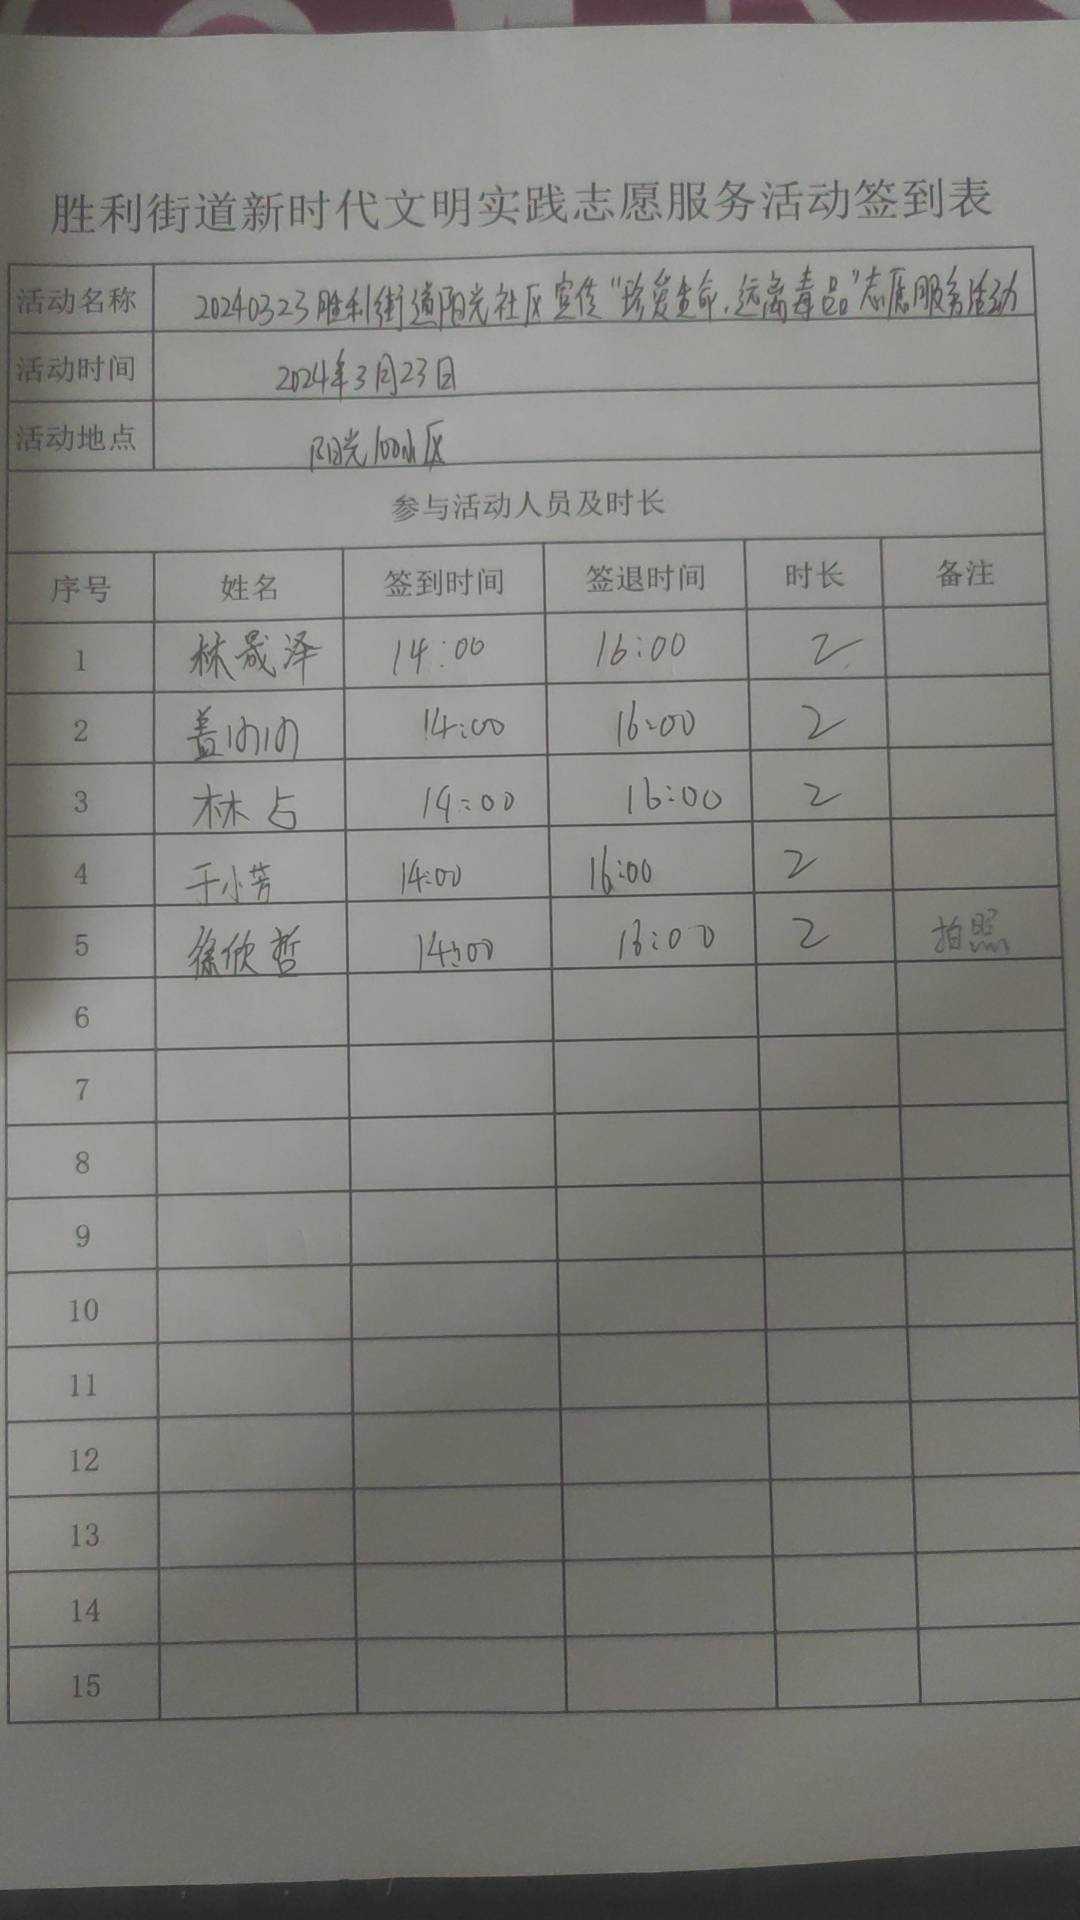 胜利街道新时代文明实践志愿服务活动签到表
活动名称 20240323胜利街道阳光社区宣传"珍爱生命,远离毒品"志愿服务活动
活动时间 2024年3月23日
活动地点 阳光100小区
参与活动人员及时长
序号 姓名 签到时间 签退时间 时长 备注
1 林晟泽 14:00 16:00 2
2 盖 14:00 16:00 2
3 林占 14:00 16:00 2
4 于小芳 14:00 16:00 2
5 徐欣哲 14:00 16:00 2 拍照
6
7
8
9
10
11
12
13
14
15